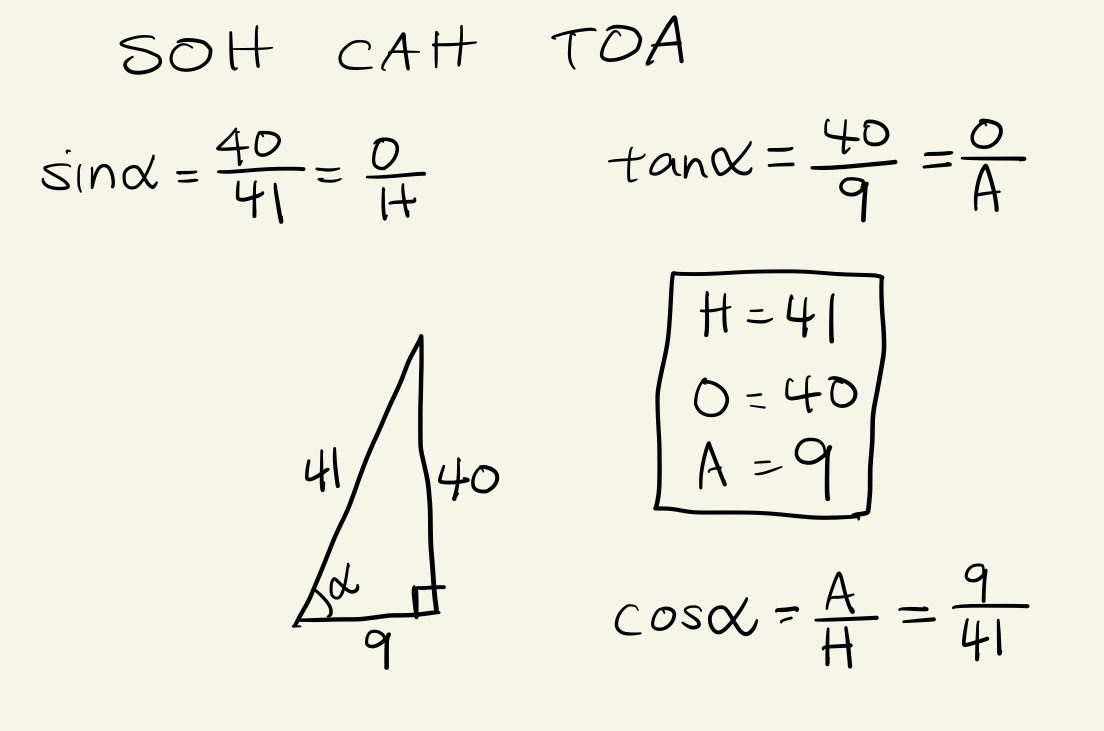 SOH CAH TOA
sinα = 40/41 = O/H
tanα = 40/9 = O/A
H = 41
O = 40
A = 9
41
40
α
9
cosα = A/H = 9/41